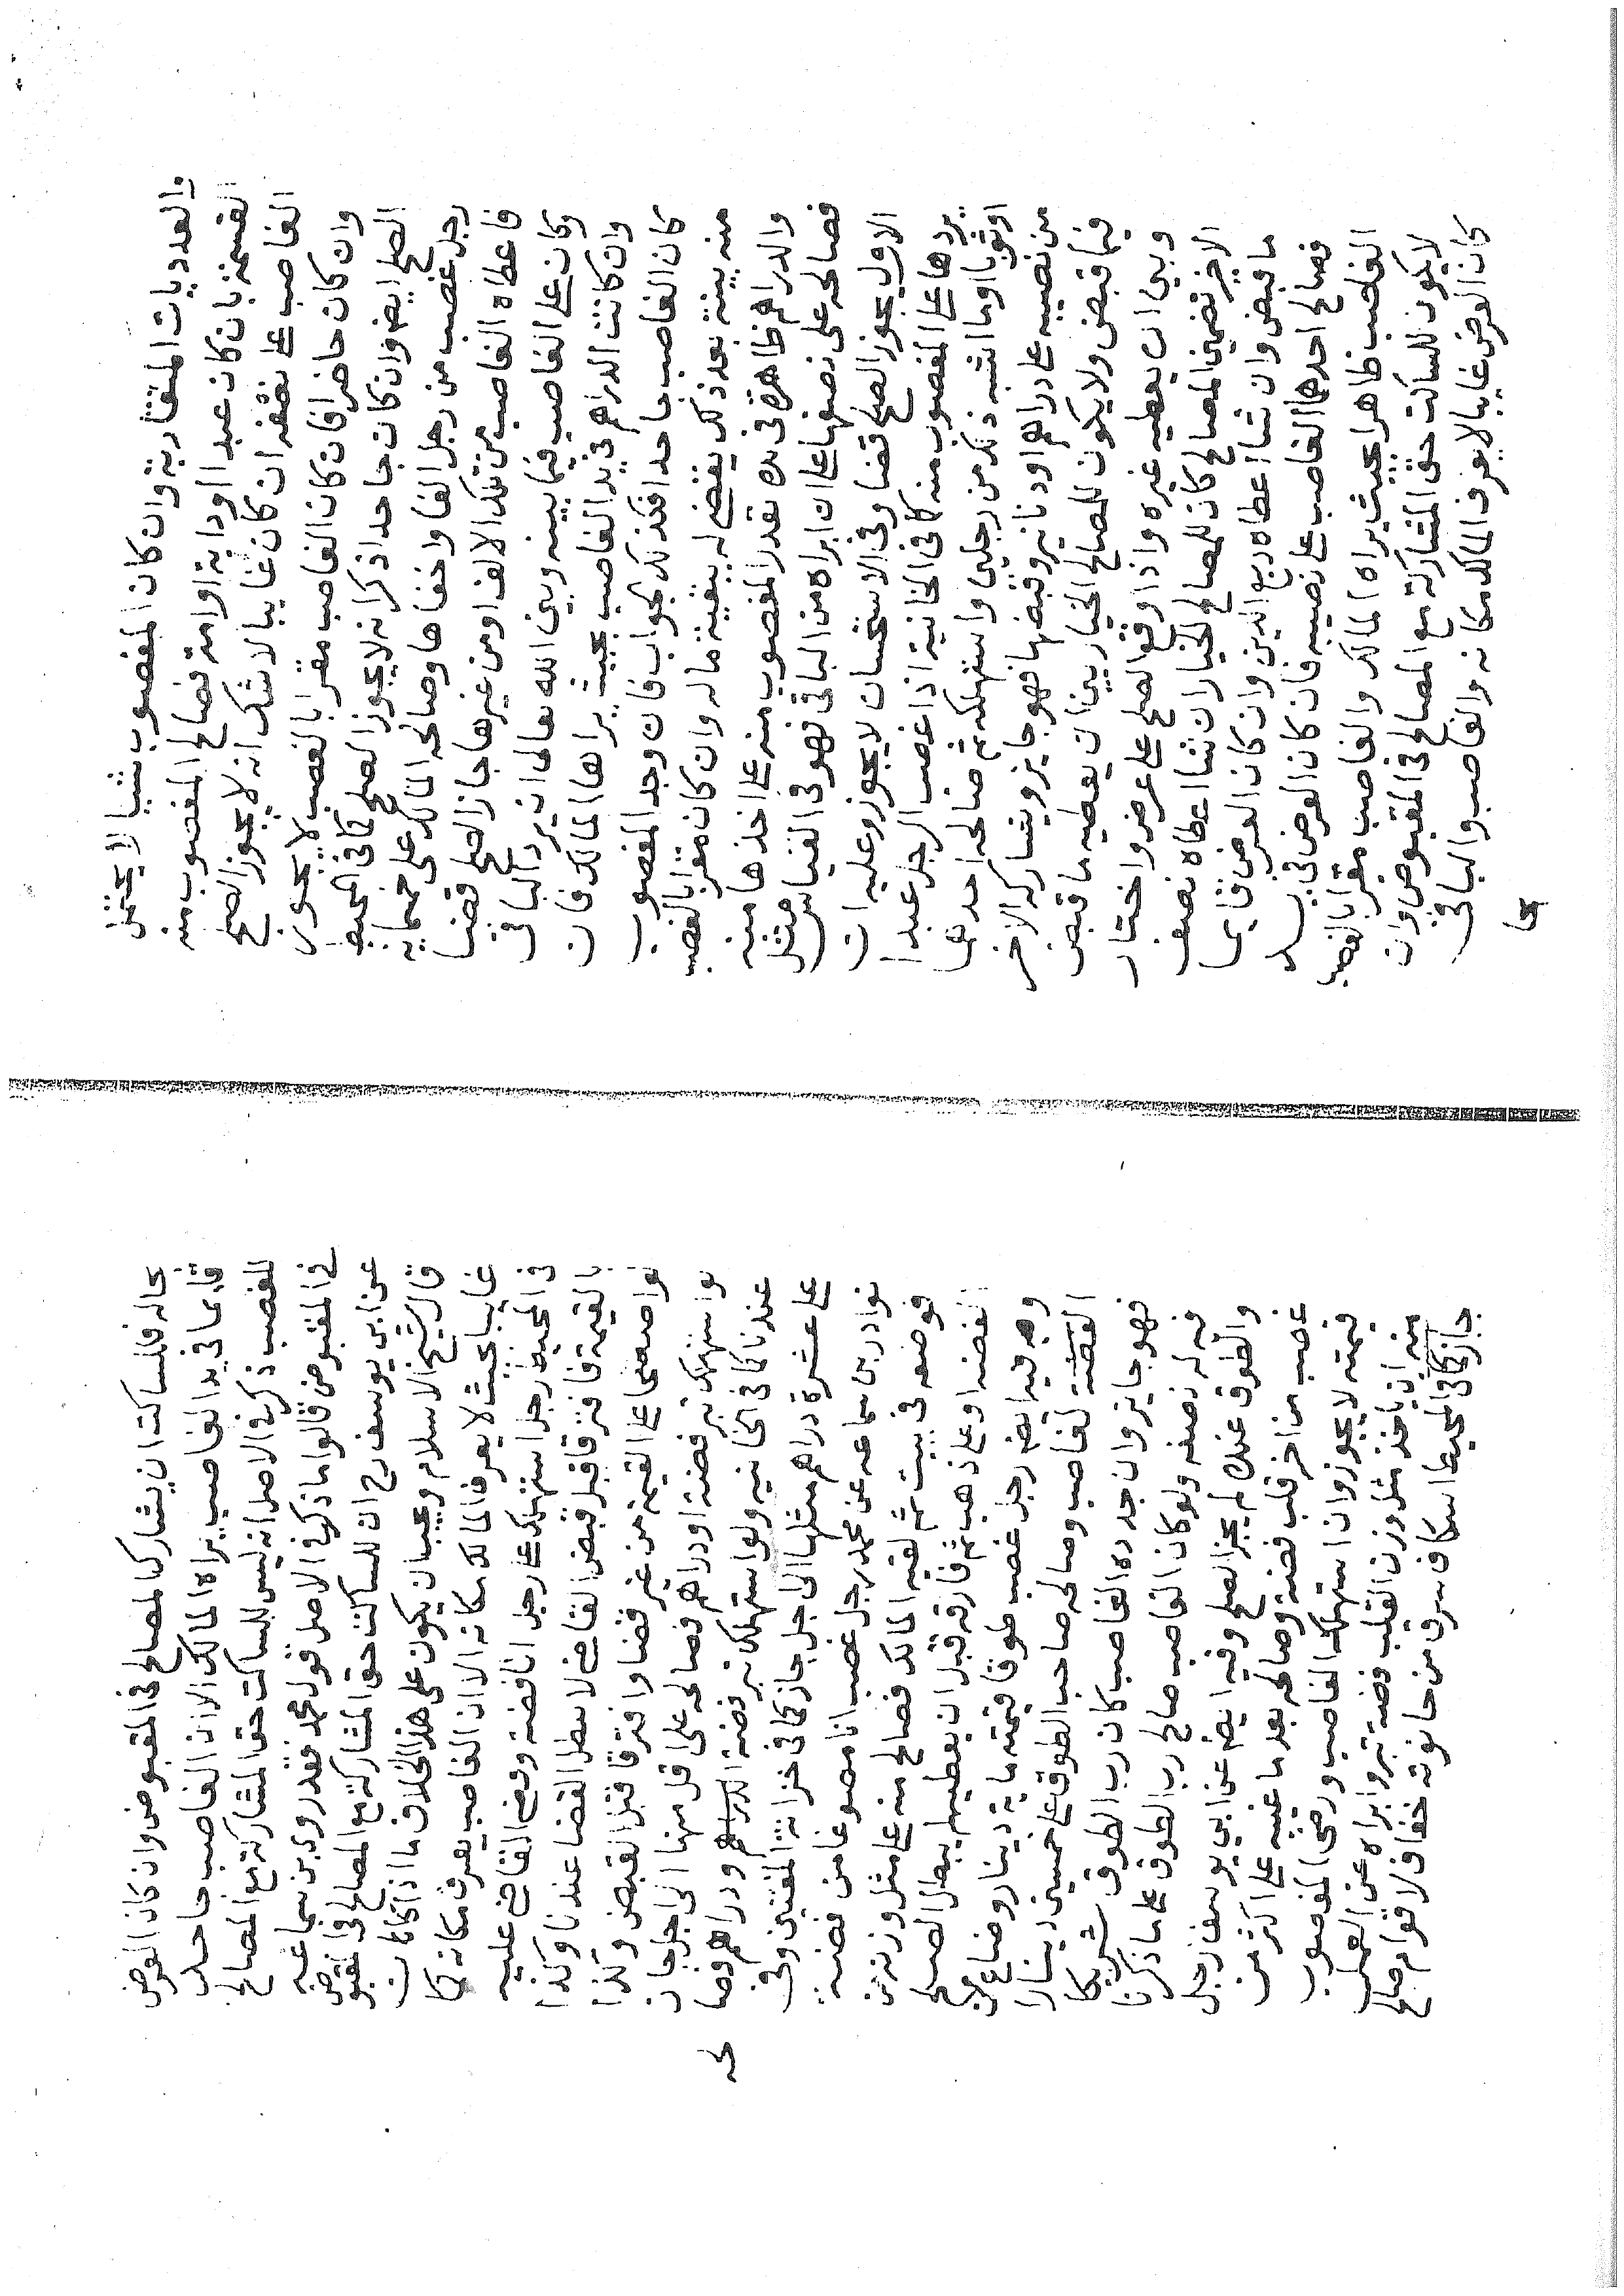 والعدديات المتقاربة وان كان المغصوب شيئا لا يحتمل
القسمة بان كان عبدا او دابة او امة فصالح المغصوب منه
الغاصب على نصفه ان كان غايبا لا شك انه لا يجوز الصلح
وان كان حاضرا فان كان الغاصب مقرا بالغصب لا يجوز
الصلح ايض وان كان جاحدا ذكر انه لا يجوز الصلح كما في المحيط
رجل غصب من رجل الفا واخفاها وصالحه المالك على خمسماية
فاعطاه الغاصب من تلك الالف او من غيرها جاز الصلح قضا
وكان على الغاصب فيما بينه وبين الله تعالى ان يرد الباقي
وان كانت الدراهم في يد الغاصب بحيث يراها المالك فان
كان الغاصب جاحدا فكذلك الجواب فان وجد المغصوب
منه بينة بعد ذلك يقضى له ببقية ماله وان كان مقرا بالغصب
والدراهم ظاهرة في يده تقدر المغصوب منه على اخذها منه
فصالحه على نصفها على ان ابراه من الباقي فهو في القياس مثل
الاول يجوز الصلح قضا وفي الاستحسان لا يجوز وعليه ان
يردها على المغصوب منه كما في الخانية اذا غصب الرجل عبدا
او ثوبا او ما اشبه ذلك من رجلين واستهلكه ثم صالحه احدهما
من نصيبه على دراهم او دنانير وقبضها فهو جايز ويشاركه الاخر
فيما قبض ولا يكون للمصالح الخيار بين ان يعطيه ما قبض
وبين ان يعطيه غيره واذا وقع الصلح على عرض واختار
الاخير تضمين المصالح كان للمصالح الخيار ان شا اعطاه نصف
ما قبض وان شا اعطاه ربع الدين وان كان العرض قايما
فصالح احدهما الغاصب على نصيبه فان كان العرض في يد
الغاصب ظاهرا بحيث يراه المالك والغاصب مقرا بالغصب
لا يكون للساكت حق المشاركة مع المصالح في المقبوض وان
كان العرض غايبا لا يعرف المالك مكانه والغاصب والباقي
بحا
بحاله فللساكت ان يشارك المصالح في المقبوض وان كان العرض
قايما في يد الغاصب يراه المالك الا ان الغاصب جاحد
للغصب ذكر في الاصل انه ليس للساكت حق المشاركة مع المصالح
في المقبوض قالوا ما ذكر في الاصل قول محمد فقد روى بن سماعه
عن ابي يوسف رح ان للساكت حق المشاركة مع المصالح في المقبوض
قال شيخ الاسلام ويجب ان يكون على هذا الخلاف ما اذا كان
غايبا بحيث لا يعرف المالك مكانه الا ان الغاصب يعرف مكانه كما
في المحيط رجل استهلك على رجل انا فضة وقضى القاضي عليه
بالقيمة فافترقا قبل قبض القاضي لا يبطل القضا عندنا وكذا
لو اصطلحا على القيمة من غير قضا وافترقا قبل القبض وكذا
لو استهلك تبر فضة او دراهم فصالحه على اقل منها الى اجل جاز
عندنا كما في الخانيه ولو استهلك تبر فضة ودراهم فصا
لحه
على عشرة دراهم مثلها الى اجل جاز كما في خزانة المفتين وفي
نوادر بن سماعه عن محمد رجل غصب انا مصوغا من فضة
فوضعه في بيت ثم لقيه المالك فصالح منه على مثل وزنه من
الفضة او على ذهب ثم فارقه قبل ان يعطيه لم يبطل الصلح
وهو فيه ايض رجل غصب طوقا قيمته ماية دينار وضاع من
الغاصب وصالحه صاحب الطوق على خمسين دينارا
فهو جايز وان جدده الغاصب كان رب الطوق شريكا
فيه له نصفه ولو كان الغاصب صالح رب الطوق على ما ذكرنا
والطوق عنده لم يجز الصلح وفيه ايض عن ابي يوسف رجل
غصب من اخر قلب فضة وصالحه بعد ما غيبه على اكثر من
قيمته لا يجوز وان استهلك الغاصب ورضى المغصوب
منه ان ياخذ مثل وزن القلب فضة تبر وابراه عن العمل
جاز كما في المحيط اسكاف سرق من حانوته خفاف لاقوام صالح